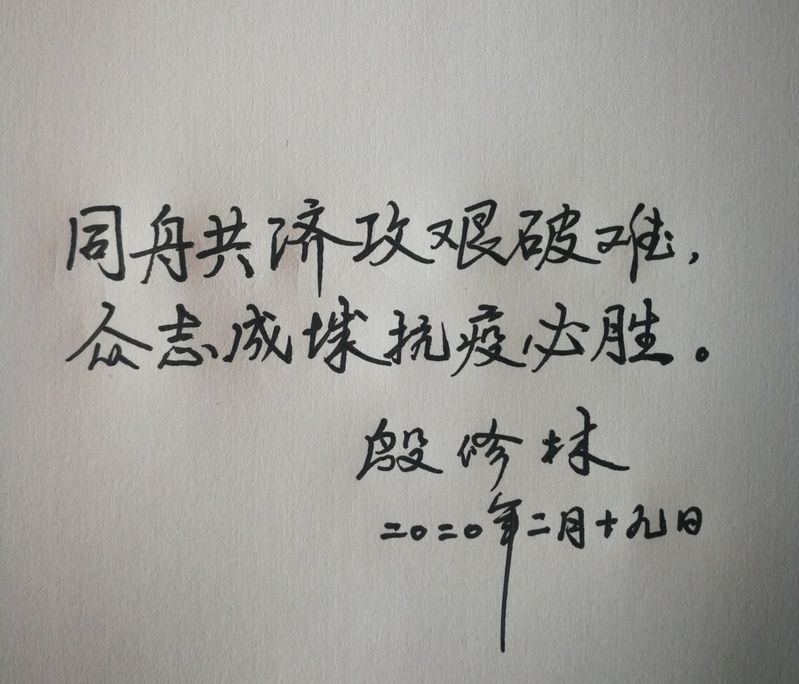 同舟共济攻艰破难，
众志成城抗疫必胜。
殷修林
二〇二〇年二月十九日